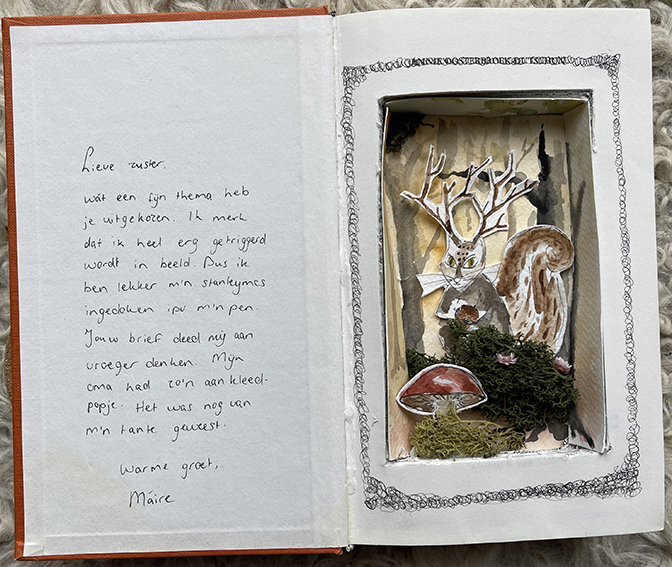 Lieve zuster,
wat een fijn thema heb
je uitgekozen. Ik merk
dat ik heel erg getriggerd
wordt in beeld. Dus ik
ben lekker m'n stanleymes
ingedoken ipv m'n pen.
Jouw brief deed mij aan
vroeger denken. Mijn
oma had zo'n aankleed-
popje. Het was nog van
m'n tante geweest.
Warme groet,
Máire